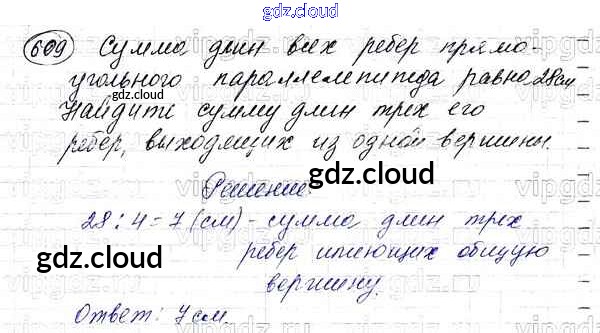 gdz.cloud
609 Сумма длин всех ребер прямо-
угольного параллелепипеда равна 28 см
gdz.cloud
Найдите сумму длин трех его
ребер, выходящих из одной вершины.
gdz.cloud
Решение:
28 : 4 = 7 (см) - сумма длин трех
ребер имеющих общую
gdz.cloud
вершину.
Ответ: 7 см
gdz.cloud